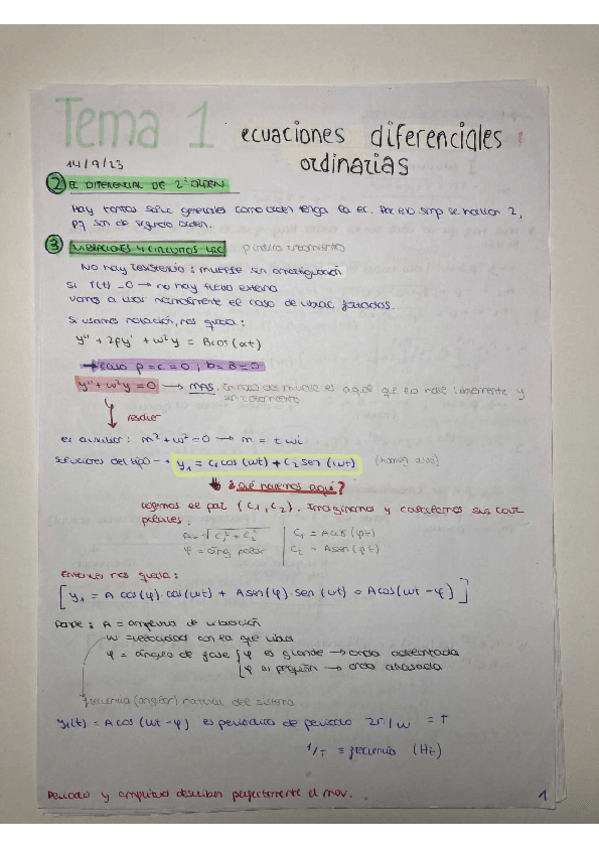 Tema 1 ecuaciones diferenciales
ordinarias
14/9/23
② EC DIFERENCIAL DE 2º ORDEN
Hay tantas soluc generales como orden tenga la ec. Por eso simp se hallan 2,
pq son de segundo orden.
③ VIBRACIONES Y CIRCUITOS LRC
No hay resistencia: muelle sin amortiguación
Si r(t) = 0 → no hay fuerza externa
Vamos a usar normalmente el caso de vibrac forzadas.
Si usamos notación, nos queda:
y'' + 2py' + ω²y = B cos(αt)
→ caso p = c = 0 ; b = B = 0
y'' + ω²y = 0 → MAS. muelle es aquel que se mueve libremente y
sin rozamiento
resolver
ec auxiliar: m² + ω² = 0 → m = ± ωi
Soluciones del tipo → y₁ = c₁cos(ωt) + c₂ sen(ωt)
¿qué hacemos aquí?
cogemos el par (c₁, c₂). Imaginamos y calculamos sus coor
polares.
A = √c₁² + c₂² c₁ = A cos(φt)
φ = áng polar c₂ = A sen(φt)
Entonces nos queda:
[y₁ = A cos(φ) · cos(ωt) + A sen(φ) · sen(ωt) = A cos(ωt − φ)]
Donde: A = amplitud de vibración
ω = velocidad con la que vibra
φ = ángulo de fase { φ es grande → onda adelantada
φ es pequeño → onda atrasada
frecuencia (angular) natural del sistema
y₁(t) = A cos(ωt − φ) es periódica de periodo 2π/ω = T
1/T = frecuencia (Hz)
Periodo y amplitud describen perfectamente el mov.
1